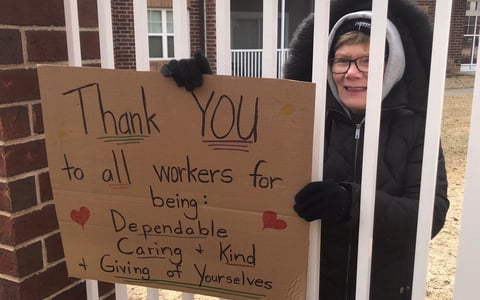 Thank YOU
to all workers for
being:
Dependable
Caring + Kind
+ Giving of Yourselves